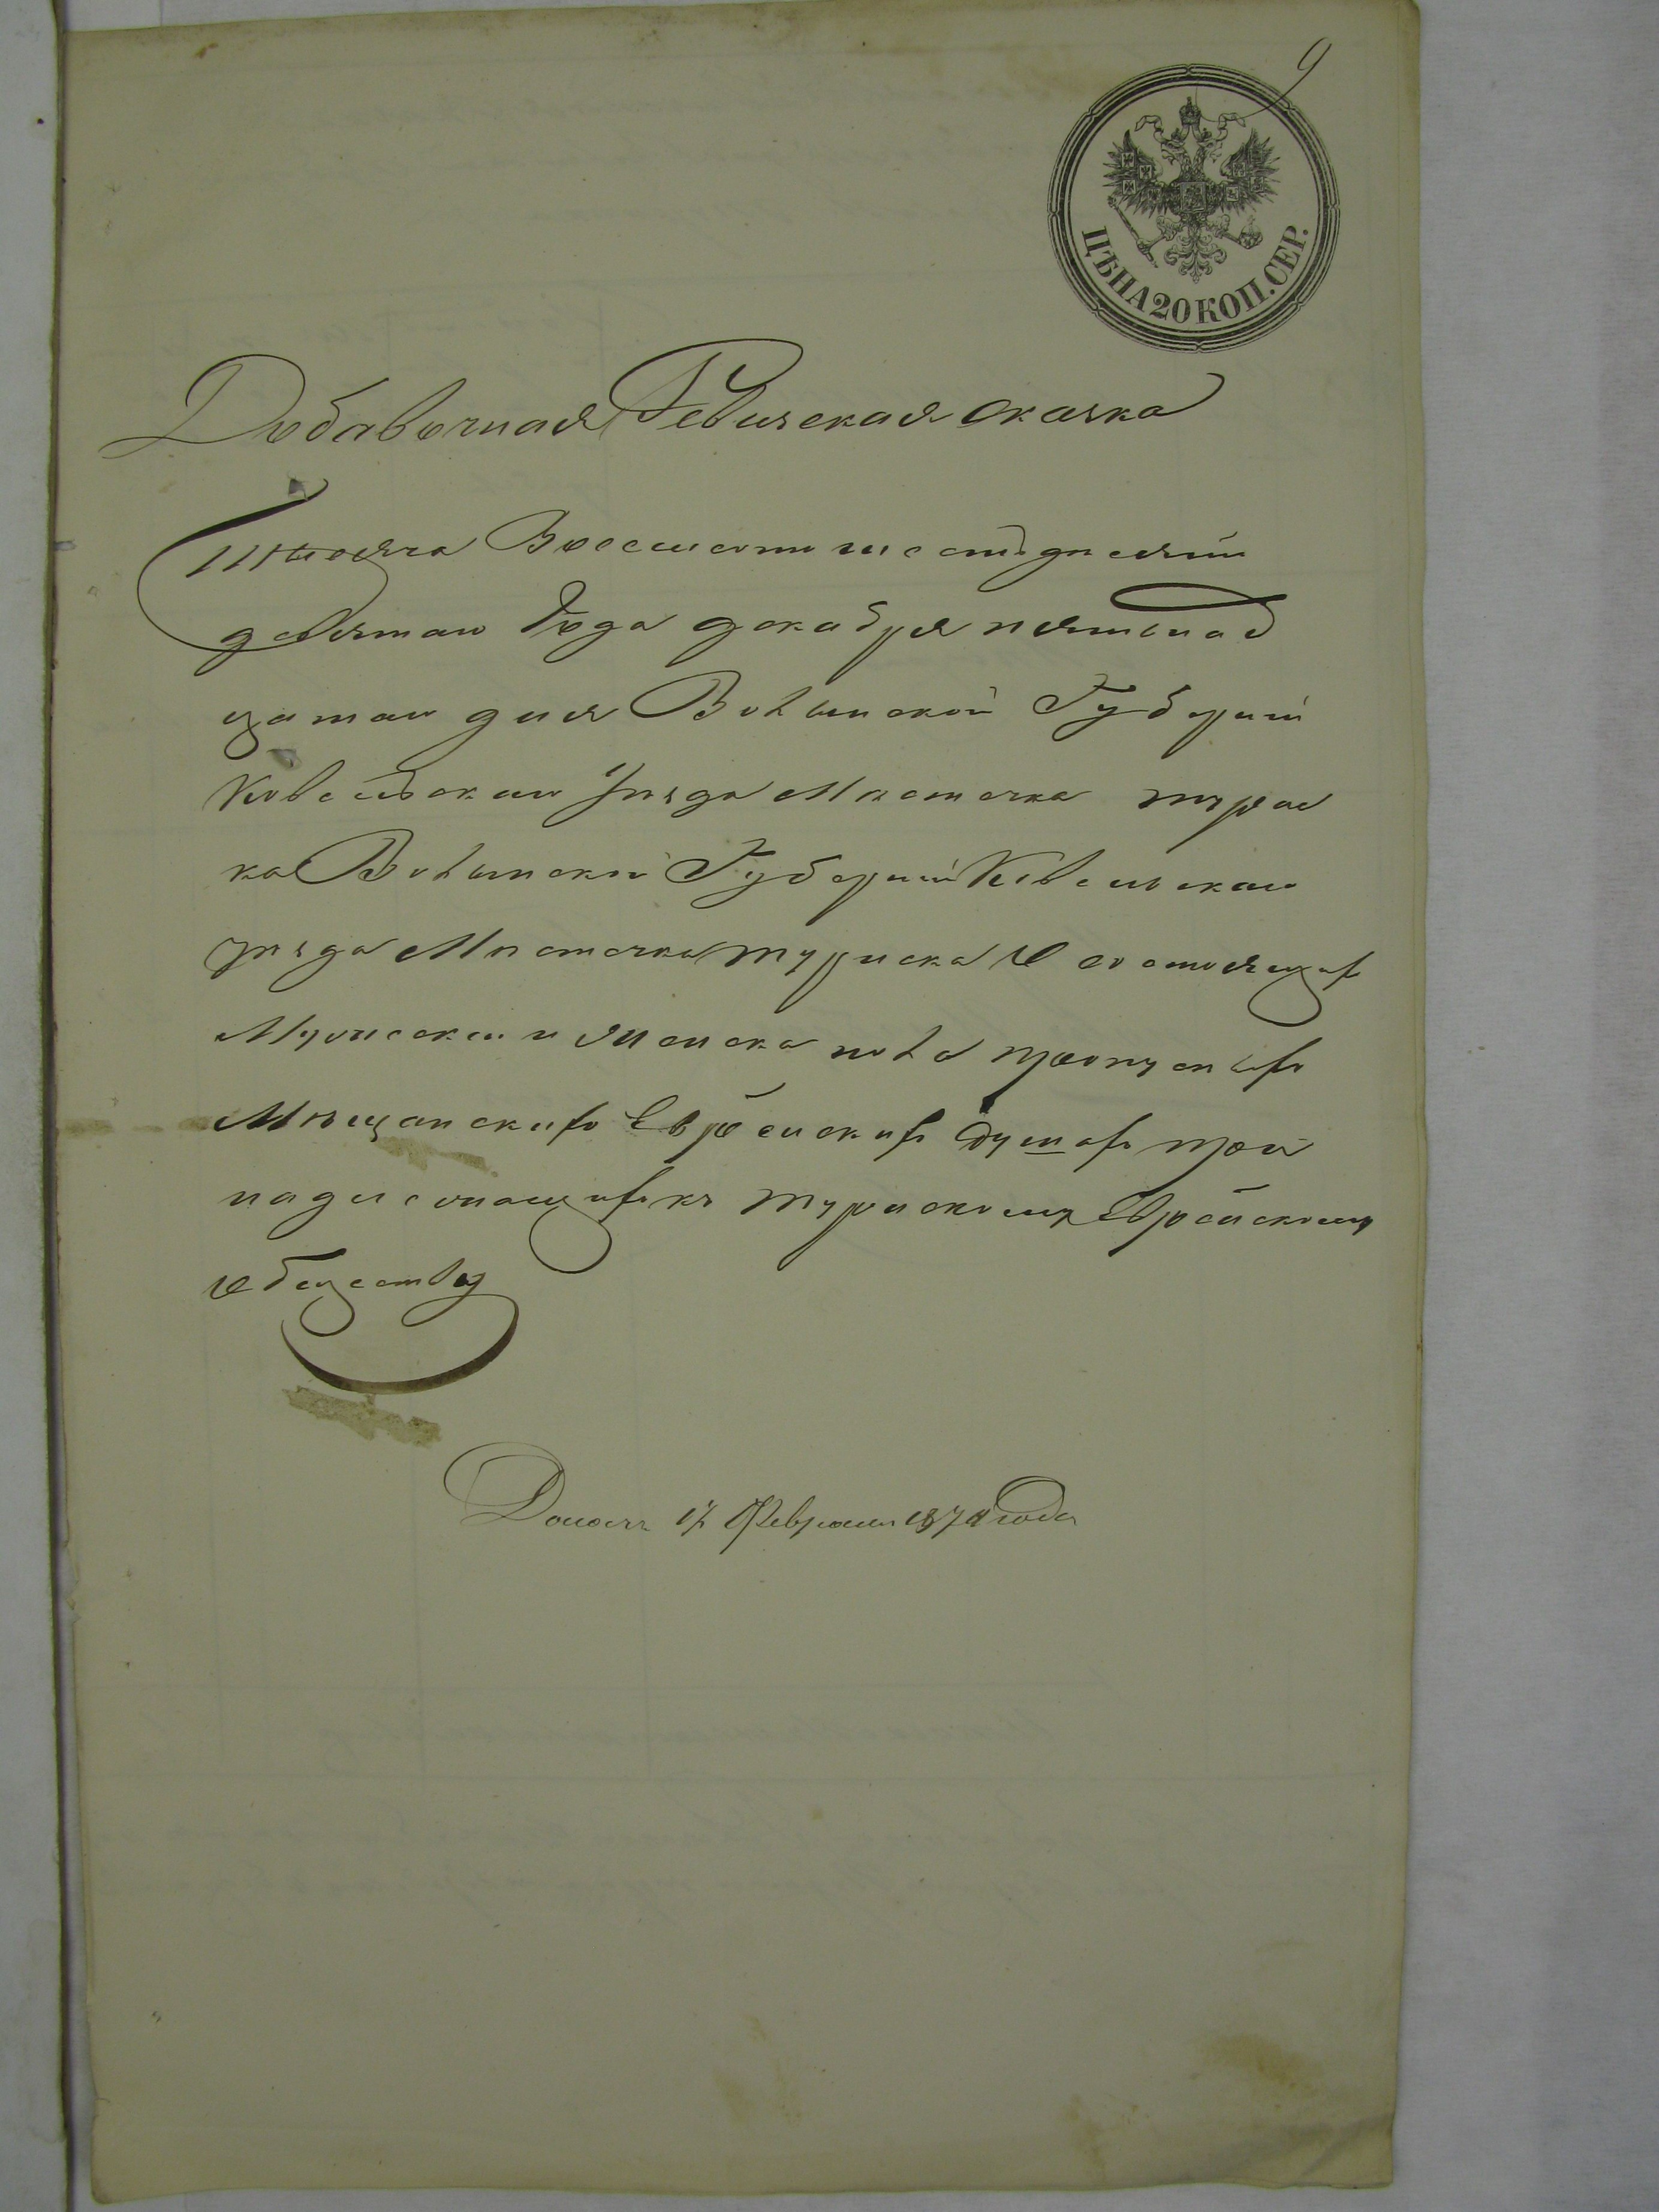 9
ЦѢНА 20 КОП. СЕР.
Добавочная Ревизская сказка
Тысяча Восемсотъ шестьдесятъ
девятаго Года декабря пятьнад
цатаго дня Волынской Губерніи
Ковельскаго уезда Мѣстечка турис
ка Волынской Губерніи Ковельскаго
уѣзда Мѣстечка туриска О состоящихъ
Мужеска и женска пола пропущеныхъ
Мѣщанскихъ Еврейскихъ душахъ при
надлежащихъ къ турискому Еврейскому
обществу
17 Февраля 1870 года